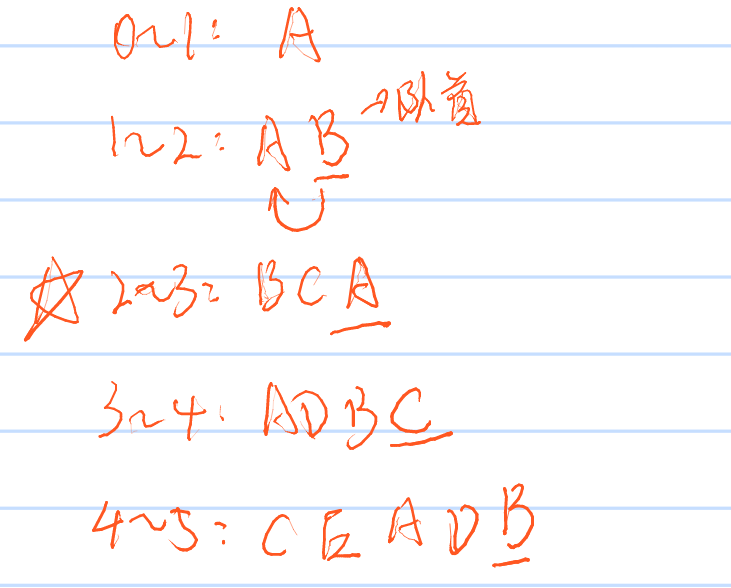 0~1: A
1~2: AB →队首
2~3: BCA
3~4: ADBC
4~5: CEADB